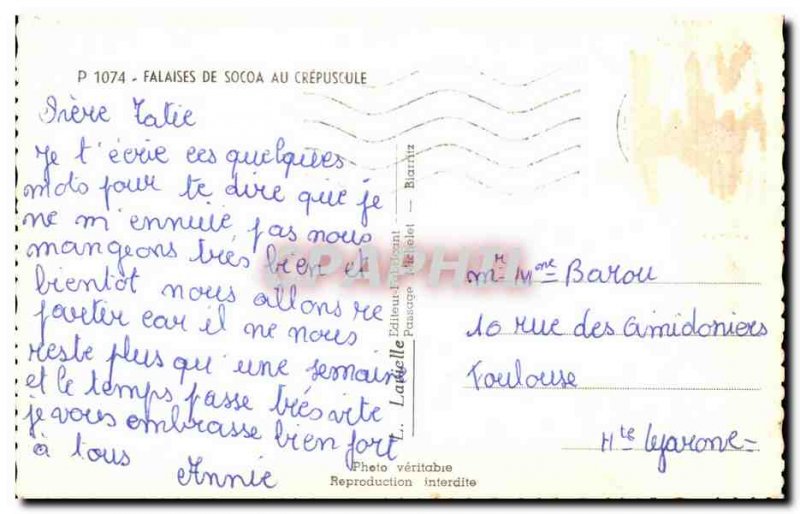 P 1074 - FALAISES DE SOCOA AU CRÉPUSCULE
Tatie
Je t'écrie ces quelques
mots pour te dire que je
ne m'ennuie pas nous
mangeons très bien et
bientôt nous allons re
partir car il ne nous
reste plus qu'une semaine
et le temps passe très vite
je vous embrasse bien fort
à tous Annie
L. Editeur-Fabricant
Passage Michelet - Biarritz
Mr Mme Barou
10 rue des amidoniers
Toulouse
Hte Garone
Photo véritable
Reproduction interdite